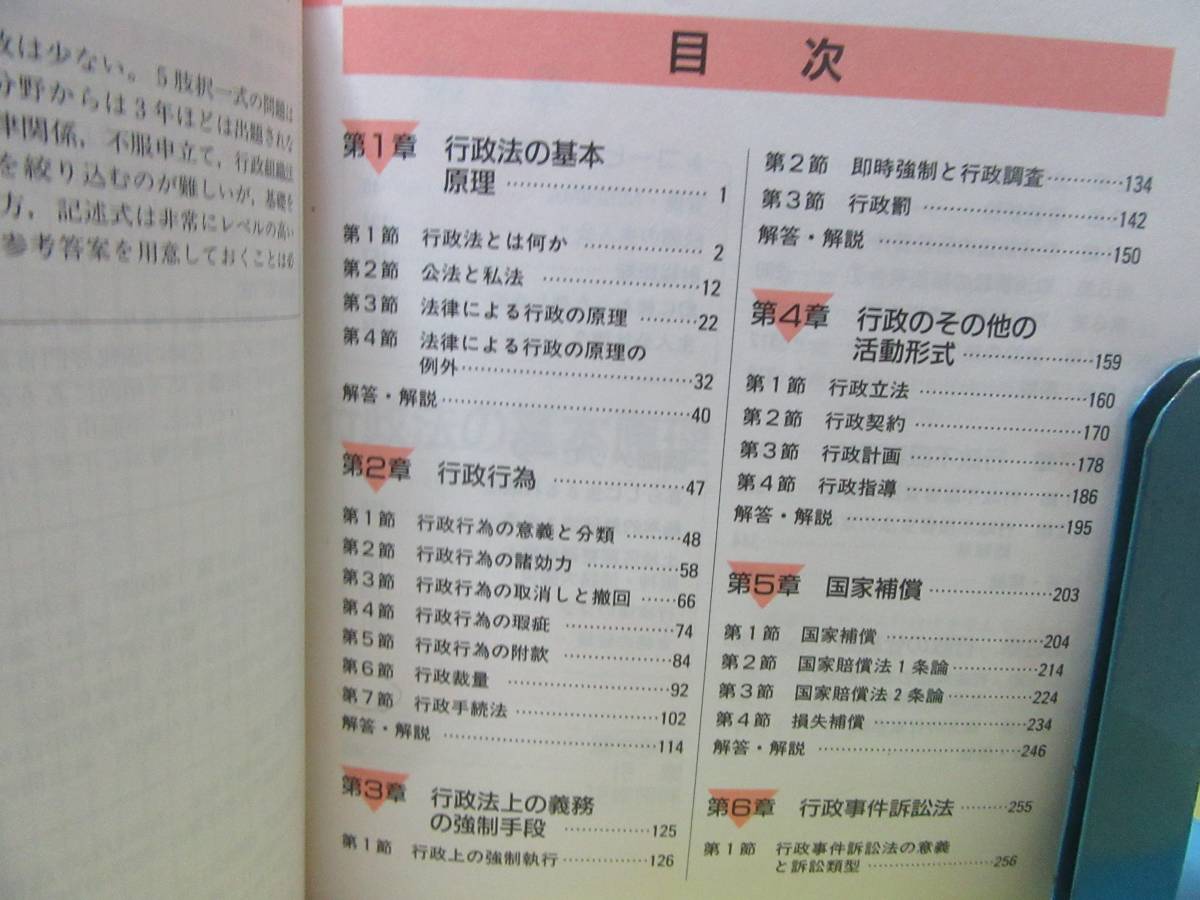 は少ない。5肢択一式の問題は
分野からは3年ほどは出題されな
関係，不服申立て，行政組織法
を絞り込むのが難しいが，基礎を
方，記述式は非常にレベルの高い
参考答案を用意しておくことは必
目 次
第1章 行政法の基本
原理 …… 1
第1節 行政法とは何か …… 2
第2節 公法と私法 …… 12
第3節 法律による行政の原理 …… 22
第4節 法律による行政の原理の
例外 …… 32
解答・解説 …… 40
第2章 行政行為 …… 47
第1節 行政行為の意義と分類 …… 48
第2節 行政行為の諸効力 …… 58
第3節 行政行為の取消しと撤回 …… 66
第4節 行政行為の瑕疵 …… 74
第5節 行政行為の附款 …… 84
第6節 行政裁量 …… 92
第7節 行政手続法 …… 102
解答・解説 …… 114
第3章 行政法上の義務
の強制手段 …… 125
第1節 行政上の強制執行 …… 126
第2節 即時強制と行政調査 …… 134
第3節 行政罰 …… 142
解答・解説 …… 150
第4章 行政のその他の
活動形式 …… 159
第1節 行政立法 …… 160
第2節 行政契約 …… 170
第3節 行政計画 …… 178
第4節 行政指導 …… 186
解答・解説 …… 195
第5章 国家補償 …… 203
第1節 国家補償 …… 204
第2節 国家賠償法1条論 …… 214
第3節 国家賠償法2条論 …… 224
第4節 損失補償 …… 234
解答・解説 …… 246
第6章 行政事件訴訟法 …… 255
第1節 行政事件訴訟法の意義
と訴訟類型 …… 256